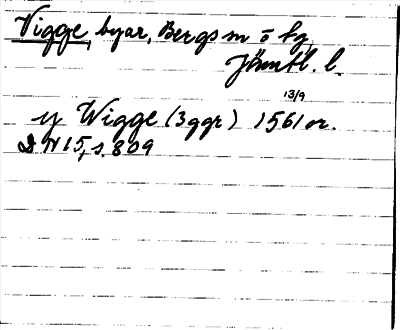 Vigge, byar, Bergs sn o tg,
Jämtl. l.
13/9
y Wigge (3 ggr) 1561 or.
DN 15, s. 809